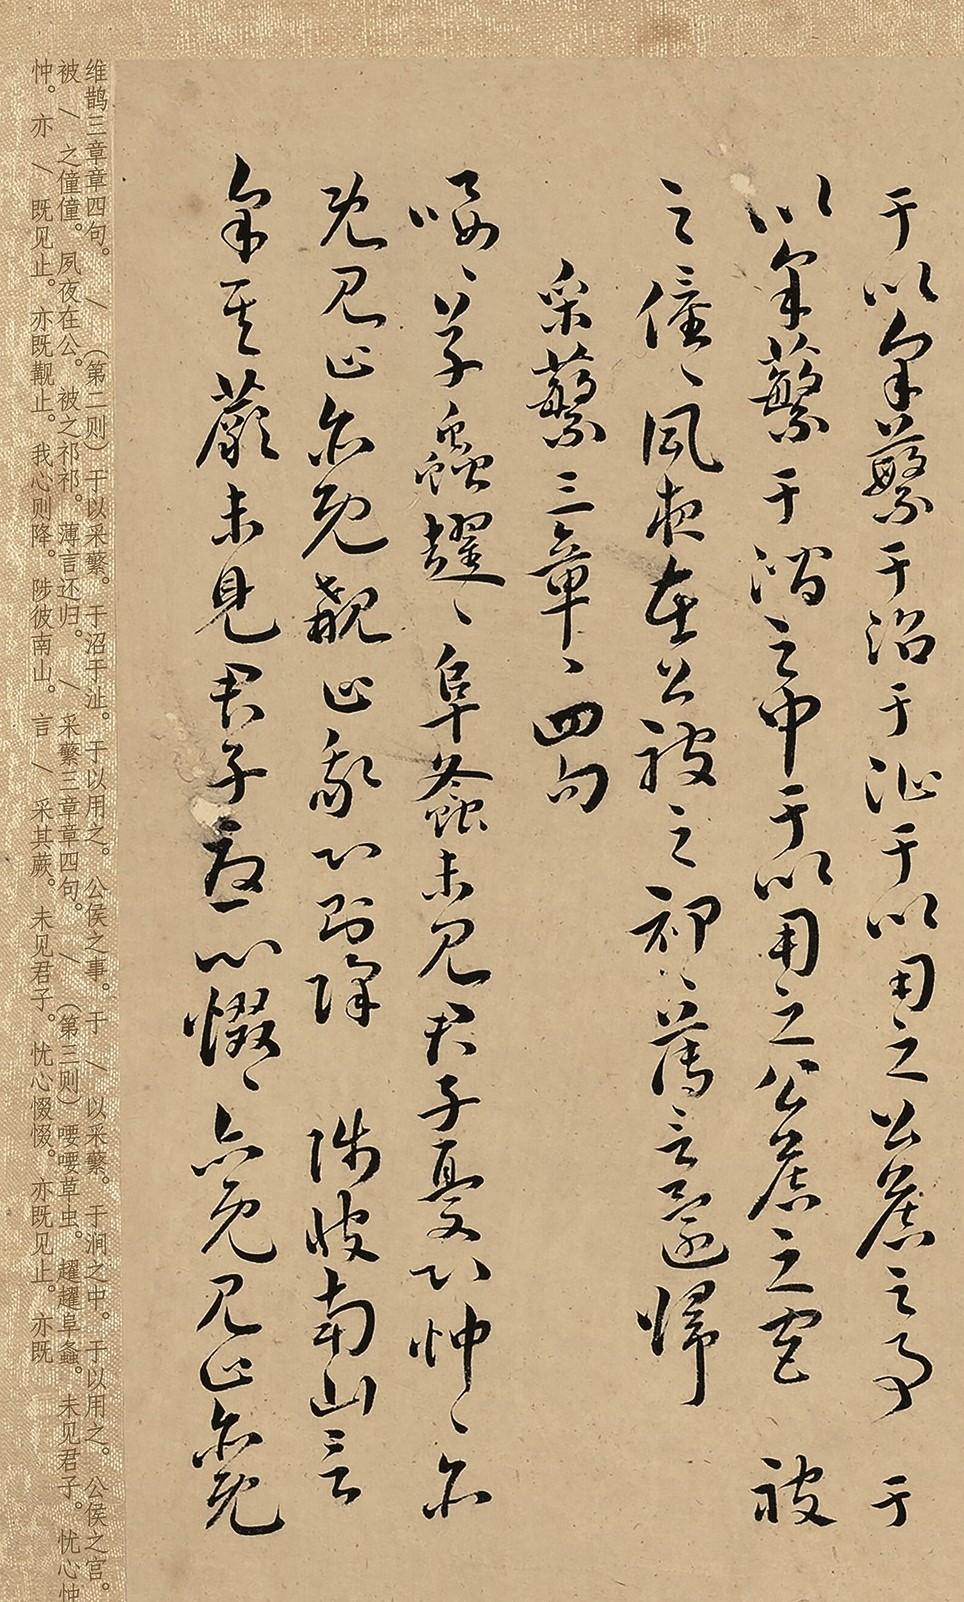 于以采蘩于沼于沚于以用之公侯之事 于
以采蘩于澗之中于以用之公侯之宮 被
之僮〻夙夜在公被之祁〻薄言還歸
采蘩三章〻四句
喓〻草蟲趯〻阜螽未見君子憂心忡〻亦
既見止亦既覯止我心則降 陟彼南山言
采其蕨未見君子憂心惙〻亦既見止亦既
维鹊三章章四句。/(第二则)于以采蘩。于沼于沚。于以用之。公侯之事。于/以采蘩。于涧之中。于以用之。公侯之宫。
被/之僮僮。夙夜在公。被之祁祁。薄言还归。/采蘩三章章四句。/(第三则)喓喓草虫。趯趯阜螽。未见君子。忧心忡
忡。亦/既见止。亦既觏止。我心则降。陟彼南山。言/采其蕨。未见君子。忧心惙惙。亦既见止。亦既